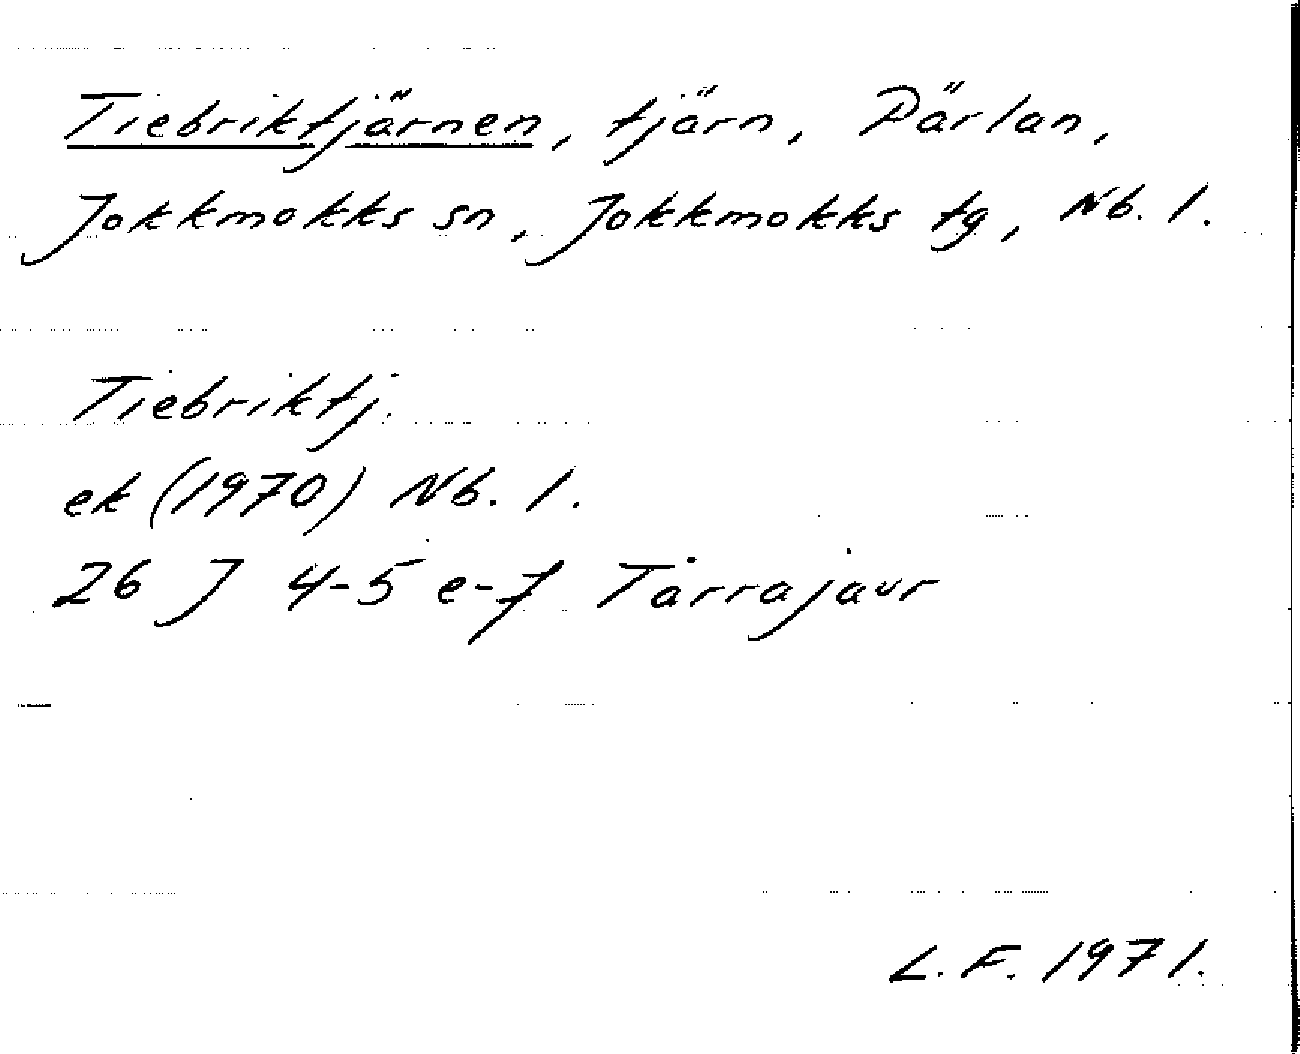 Tiebriktjärnen, tjärn, Pärlan,
Jokkmokks sn, Jokkmokks tg, Nb. l.
Tiebriktj.
ek (1970) Nb. l.
26 J 4-5 e-f Tårrajaur
L. F. 1971.